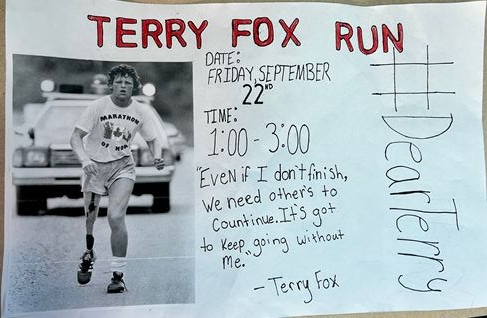 TERRY FOX RUN
DATE:
FRIDAY, SEPTEMBER
22ND
TIME:
1:00 - 3:00
"EveN if I don't finish,
We need other's to
Countinue. It's got
to keep going without
Me."
- Terry Fox
#DearTerry
MARATHON
OF HOPE